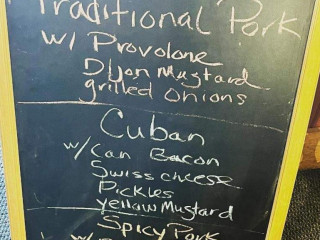 Traditional Pork
w/ Provolone
Dijon Mustard
grilled Onions
Cuban
w/ Can Bacon
Swiss cheese
Pickles
yellow Mustard
Spicy Pork